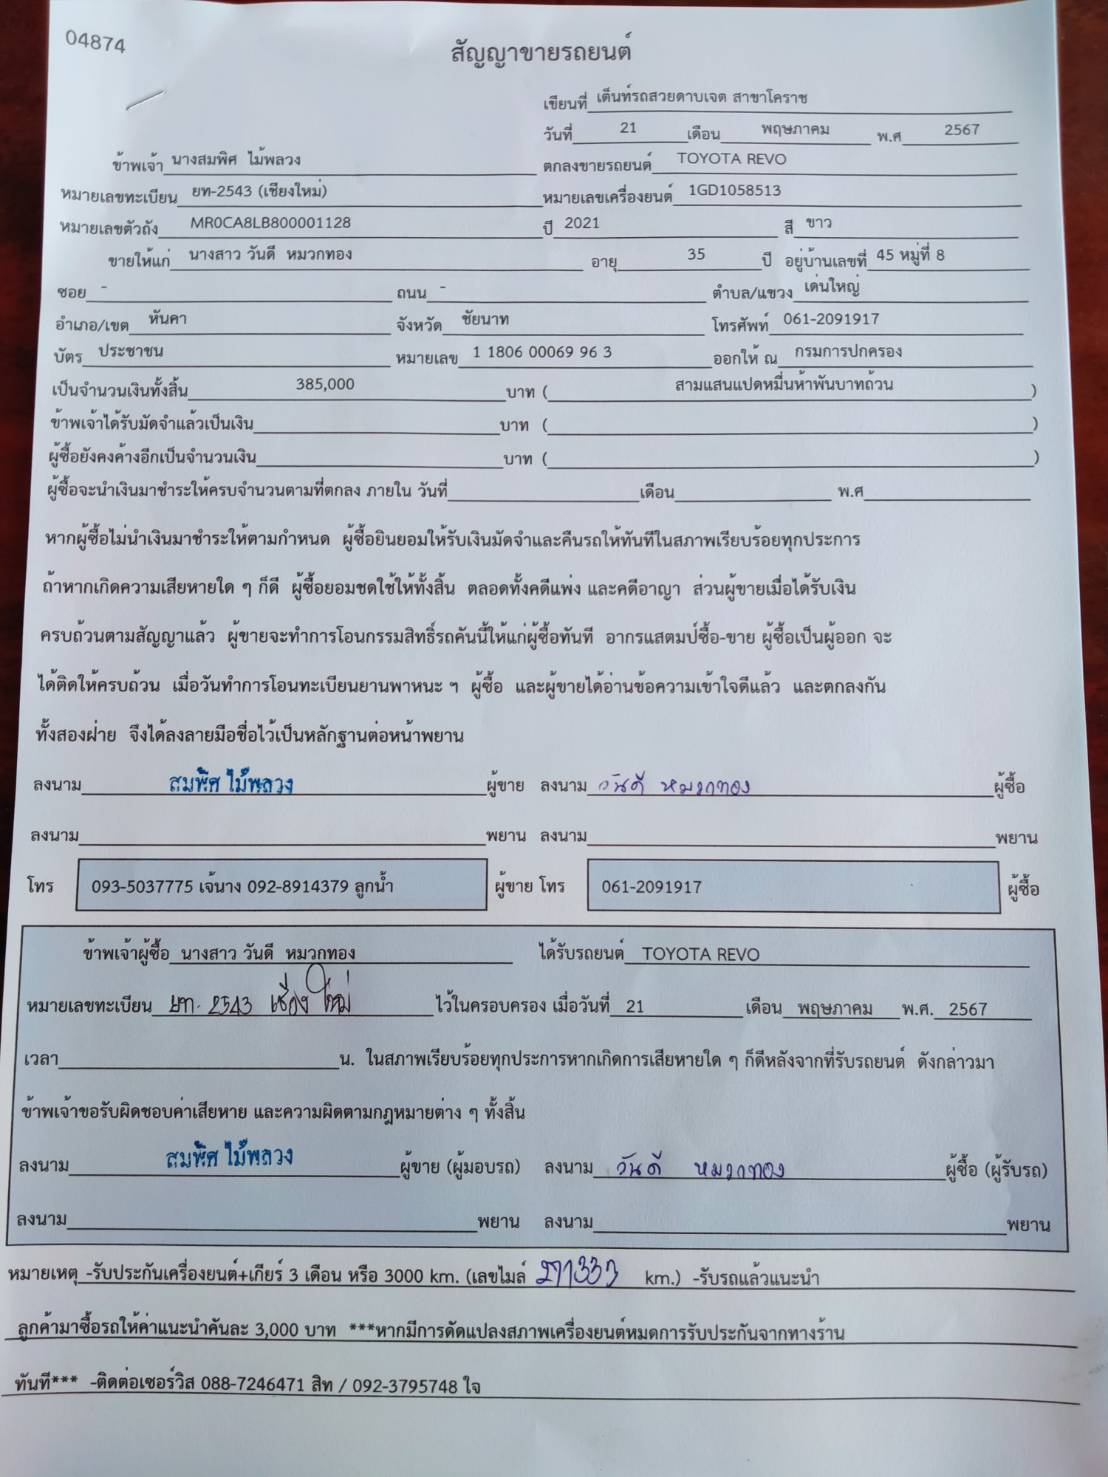 04874
สัญญาขายรถยนต์
เขียนที่ เต็นท์รถสวยดาบเจต สาขาโคราช
วันที่ 21 เดือน พฤษภาคม พ.ศ 2567
ข้าพเจ้า นางสมพิศ ไม้พลวง ตกลงขายรถยนต์ TOYOTA REVO
หมายเลขทะเบียน ยท-2543 (เชียงใหม่) หมายเลขเครื่องยนต์ 1GD1058513
หมายเลขตัวถัง MR0CA8LB800001128 ปี 2021 สี ขาว
ขายให้แก่ นางสาว วันดี หมวกทอง อายุ 35 ปี อยู่บ้านเลขที่ 45 หมู่ที่ 8
ซอย - ถนน - ตำบล/แขวง เด่นใหญ่
อำเภอ/เขต หันคา จังหวัด ชัยนาท โทรศัพท์ 061-2091917
บัตร ประชาชน หมายเลข 1 1806 00069 96 3 ออกให้ ณ กรมการปกครอง
เป็นจำนวนเงินทั้งสิ้น 385,000 บาท ( สามแสนแปดหมื่นห้าพันบาทถ้วน )
ข้าพเจ้าได้รับมัดจำแล้วเป็นเงิน บาท ( )
ผู้ซื้อยังคงค้างอีกเป็นจำนวนเงิน บาท ( )
ผู้ซื้อจะนำเงินมาชำระให้ครบจำนวนตามที่ตกลง ภายใน วันที่ เดือน พ.ศ
หากผู้ซื้อไม่นำเงินมาชำระให้ตามกำหนด ผู้ซื้อยินยอมให้รับเงินมัดจำและคืนรถให้ทันทีในสภาพเรียบร้อยทุกประการ
ถ้าหากเกิดความเสียหายใด ๆ ก็ดี ผู้ซื้อยอมชดใช้ให้ทั้งสิ้น ตลอดทั้งคดีแพ่ง และคดีอาญา ส่วนผู้ขายเมื่อได้รับเงิน
ครบถ้วนตามสัญญาแล้ว ผู้ขายจะทำการโอนกรรมสิทธิ์รถคันนี้ให้แก่ผู้ซื้อทันที อากรแสตมป์ซื้อ-ขาย ผู้ซื้อเป็นผู้ออก จะ
ได้ติดให้ครบถ้วน เมื่อวันทำการโอนทะเบียนยานพาหนะ ฯ ผู้ซื้อ และผู้ขายได้อ่านข้อความเข้าใจดีแล้ว และตกลงกัน
ทั้งสองฝ่าย จึงได้ลงลายมือชื่อไว้เป็นหลักฐานต่อหน้าพยาน
ลงนาม สมพิศ ไม้พลวง ผู้ขาย ลงนาม วันดี หมวกทอง ผู้ซื้อ
ลงนาม พยาน ลงนาม พยาน
โทร 093-5037775 เจ้นาง 092-8914379 ลูกน้ำ ผู้ขาย โทร 061-2091917 ผู้ซื้อ
ข้าพเจ้าผู้ซื้อ นางสาว วันดี หมวกทอง ได้รับรถยนต์ TOYOTA REVO
หมายเลขทะเบียน ยท. 2543 เชียงใหม่ ไว้ในครอบครอง เมื่อวันที่ 21 เดือน พฤษภาคม พ.ศ. 2567
เวลา น. ในสภาพเรียบร้อยทุกประการหากเกิดการเสียหายใด ๆ ก็ดีหลังจากที่รับรถยนต์ ดังกล่าวมา
ข้าพเจ้าขอรับผิดชอบค่าเสียหาย และความผิดตามกฎหมายต่าง ๆ ทั้งสิ้น
ลงนาม สมพิศ ไม้พลวง ผู้ขาย (ผู้มอบรถ) ลงนาม วันดี หมวกทอง ผู้ซื้อ (ผู้รับรถ)
ลงนาม พยาน ลงนาม พยาน
หมายเหตุ -รับประกันเครื่องยนต์+เกียร์ 3 เดือน หรือ 3000 km. (เลขไมล์ 271333 km.) -รับรถแล้วแนะนำ
ลูกค้ามาซื้อรถให้ค่าแนะนำคันละ 3,000 บาท ***หากมีการดัดแปลงสภาพเครื่องยนต์หมดการรับประกันจากทางร้าน
ทันที*** -ติดต่อเซอร์วิส 088-7246471 สิท / 092-3795748 ใจ